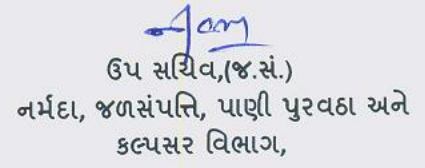 ઉપ સચિવ,(જ.સં.)
નર્મદા, જળસંપત્તિ, પાણી પુરવઠા અને
કલ્પસર વિભાગ,